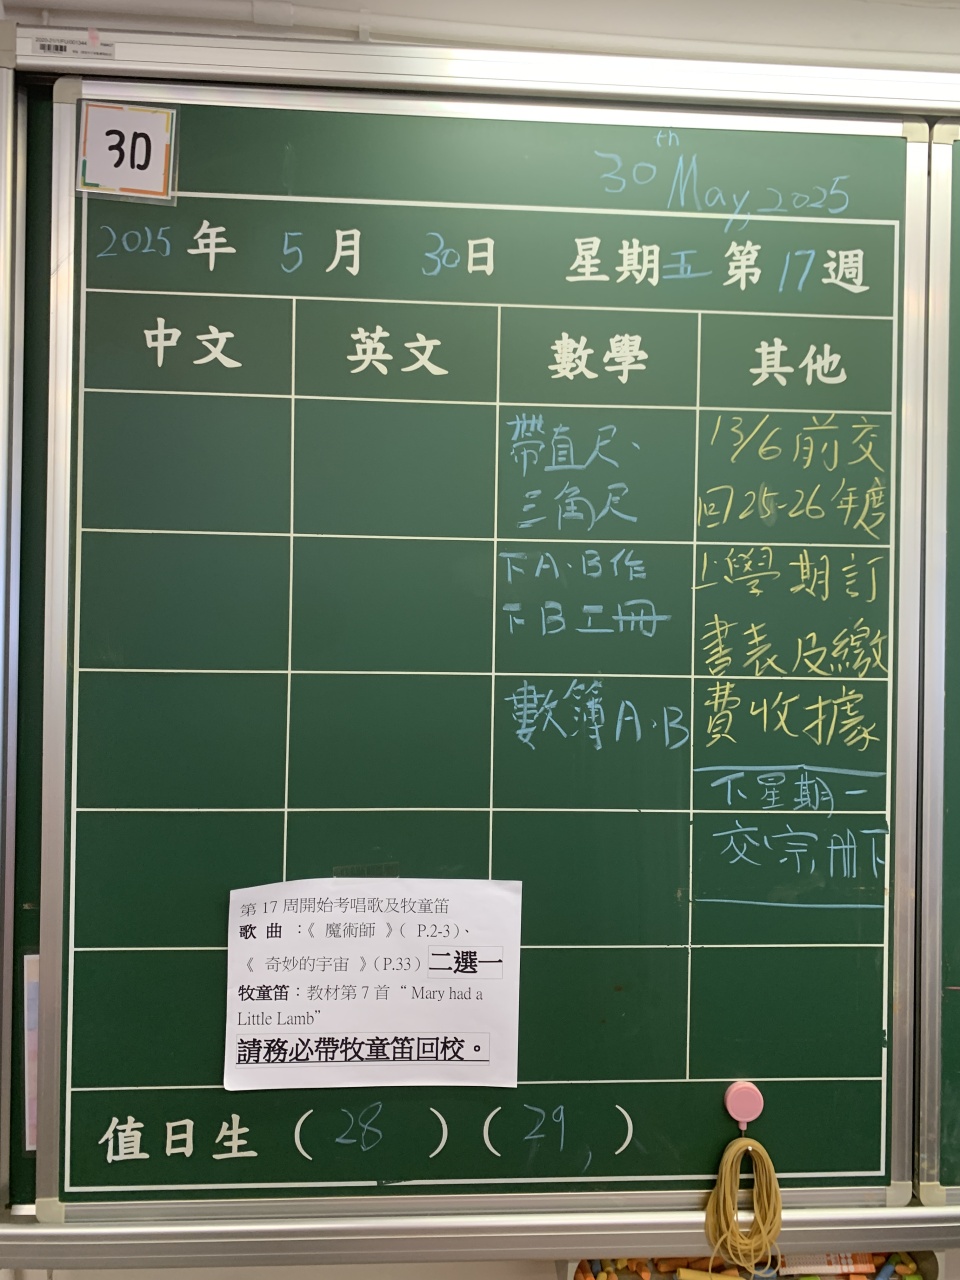 3D
30th May, 2025
2025年 5月 30日 星期五 第17週
中文 英文 數學 其他
帶直尺、
三角尺
下A、B作
下B工冊
數簿A、B
13/6前交
回25-26年度
上學期訂
書表及繳
費收據
下星期一
交宗冊下
第 17 周開始考唱歌及牧童笛
歌 曲 ：《 魔術師 》( P.2-3)、
《 奇妙的宇宙 》(P.33) 二選一
牧童笛：教材第 7 首 “ Mary had a
Little Lamb”
請務必帶牧童笛回校。
值日生 ( 28 ) ( 29 )